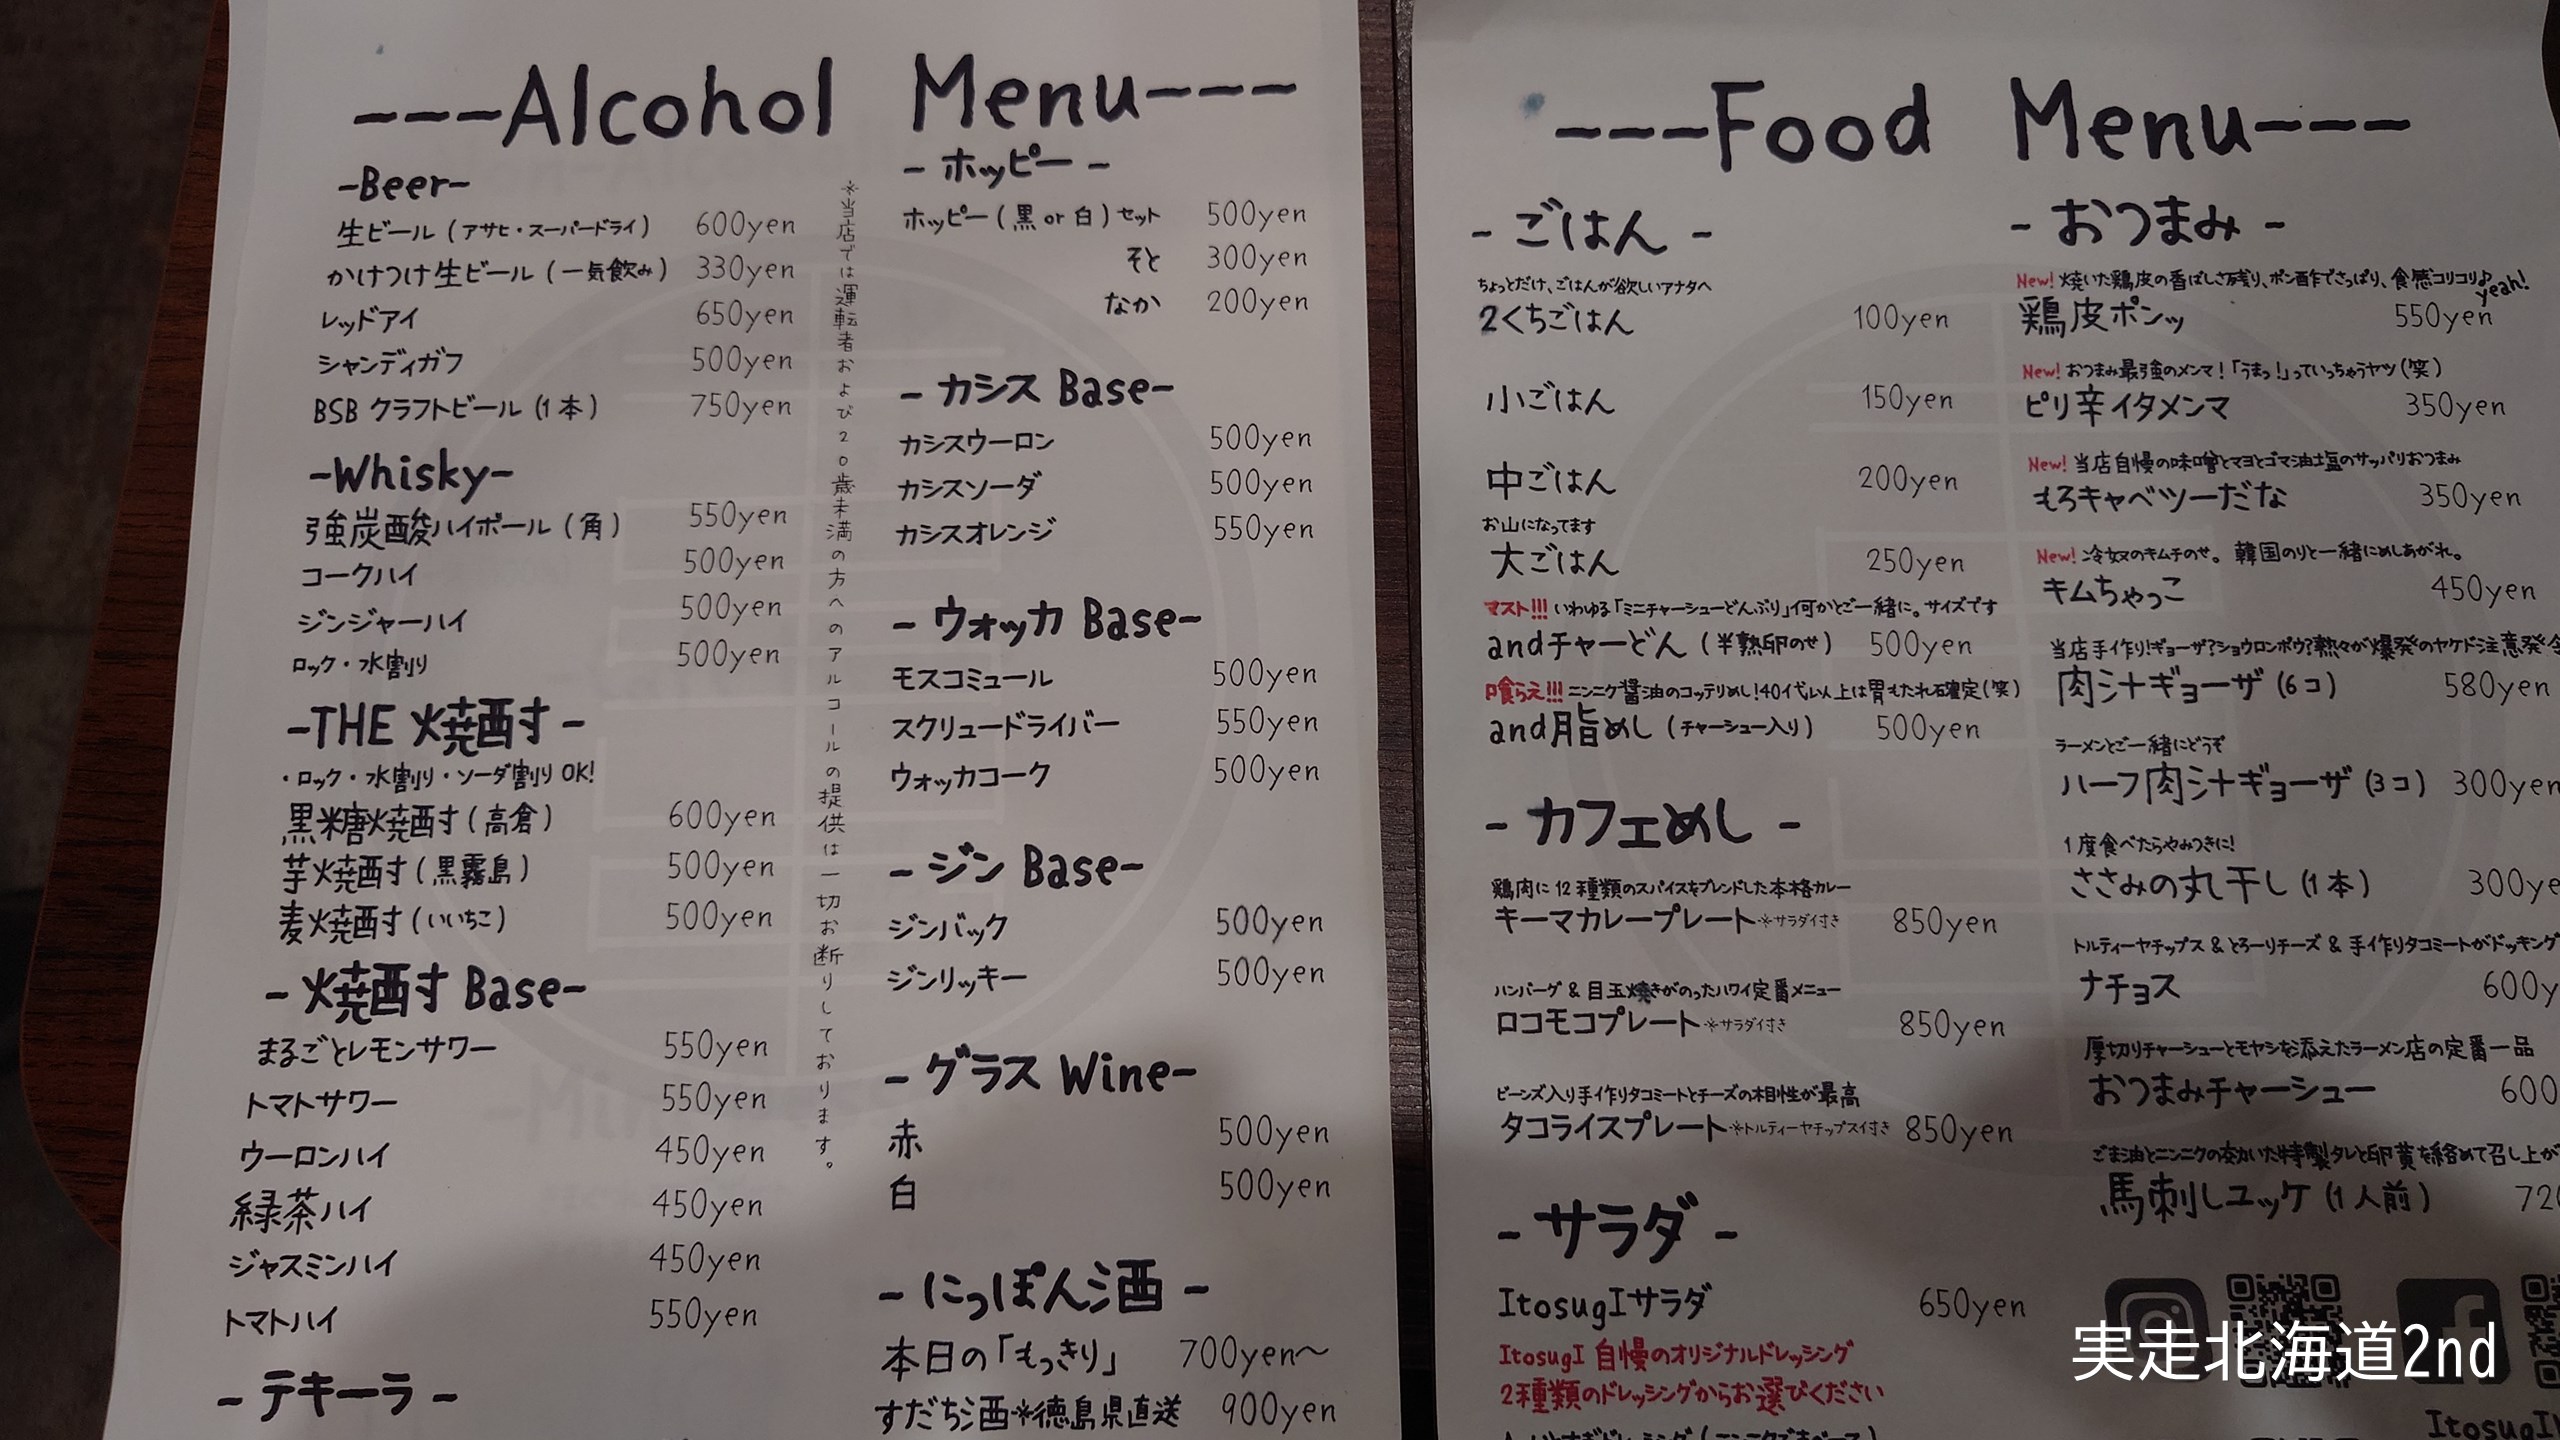 ---Alcohol Menu---
-Beer-
生ビール (アサヒ・スーパードライ) 600yen
かけつけ生ビール (一気飲み) 330yen
レッドアイ 650yen
シャンディガフ 500yen
BSB クラフトビール (1本) 750yen
-Whisky-
強炭酸ハイボール (角) 550yen
コークハイ 500yen
ジンジャーハイ 500yen
ロック・水割り 500yen
-THE 焼酎-
・ロック・水割り・ソーダ割り OK!
黒糖焼酎 (高倉) 600yen
芋焼酎 (黒霧島) 500yen
麦焼酎 (いいちこ) 500yen
- 焼酎 Base-
まるごとレモンサワー 550yen
トマトサワー 550yen
ウーロンハイ 450yen
緑茶ハイ 450yen
ジャスミンハイ 450yen
トマトハイ 550yen
- テキーラ -
※当店では運転者および20歳未満の方へのアルコールの提供は一切お断りしております。
- ホッピー -
ホッピー (黒 or 白) セット 500yen
そと 300yen
なか 200yen
- カシス Base-
カシスウーロン 500yen
カシスソーダ 500yen
カシスオレンジ 550yen
- ウォッカ Base-
モスコミュール 500yen
スクリュードライバー 550yen
ウォッカコーク 500yen
- ジン Base-
ジンバック 500yen
ジンリッキー 500yen
- グラス Wine-
赤 500yen
白 500yen
- にっぽん酒 -
本日の「もっきり」 700yen〜
すだち酒※徳島県直送 900yen
---Food Menu---
- ごはん -
ちょっとだけ、ごはんが欲しいアナタへ
2くちごはん 100yen
小ごはん 150yen
中ごはん 200yen
お山になってます
大ごはん 250yen
マスト!!! いわゆる「ミニチャーシューどんぶり」何かとご一緒に。サイズです
andチャーどん (半熟卵のせ) 500yen
喰らえ!!! ニンニク醤油のコッテリめし!40代以上は胃もたれ確定(笑)
and脂めし (チャーシュー入り) 500yen
- カフェめし -
鶏肉に12種類のスパイスをブレンドした本格カレー
キーマカレープレート※サラダ付き 850yen
ハンバーグ & 目玉焼きがのったハワイ定番メニュー
ロコモコプレート※サラダ付き 850yen
ビーンズ入り手作りタコミートとチーズの相性が最高
タコライスプレート※トルティーヤチップス付き 850yen
- サラダ -
ItosugIサラダ 650yen
ItosugI 自慢のオリジナルドレッシング
2種類のドレッシングからお選びください
- おつまみ -
New! 焼いた鶏皮の香ばしさ残り、ポン酢でさっぱり、食感コリコリ♪yeah!
鶏皮ポンッ 550yen
New! おつまみ最強のメンマ!「うまっ!」っていっちゃうヤツ(笑)
ピリ辛イタメンマ 350yen
New! 当店自慢の味噌とマヨとゴマ油塩のサッパリおつまみ
もろキャベツーだな 350yen
New! 冷奴のキムチのせ。韓国のりと一緒にめしあがれ。
キムちゃっこ 450yen
当店手作り!ギョーザ?ショウロンポウ?熱々が爆発のヤケド注意発令
肉汁ギョーザ (6コ) 580yen
ラーメンとご一緒にどうぞ
ハーフ肉汁ギョーザ (3コ) 300yen
1度食べたらやみつきに!
ささみの丸干し (1本) 300ye
トルティーヤチップス & とろーりチーズ & 手作りタコミートがドッキング
ナチョス 600y
厚切りチャーシューとモヤシを添えたラーメン店の定番一品
おつまみチャーシュー 600
ごま油とニンニクの効いた特製タレと卵黄を絡めて召し上が
馬刺しユッケ (1人前) 720
実走北海道2nd
ItosugI